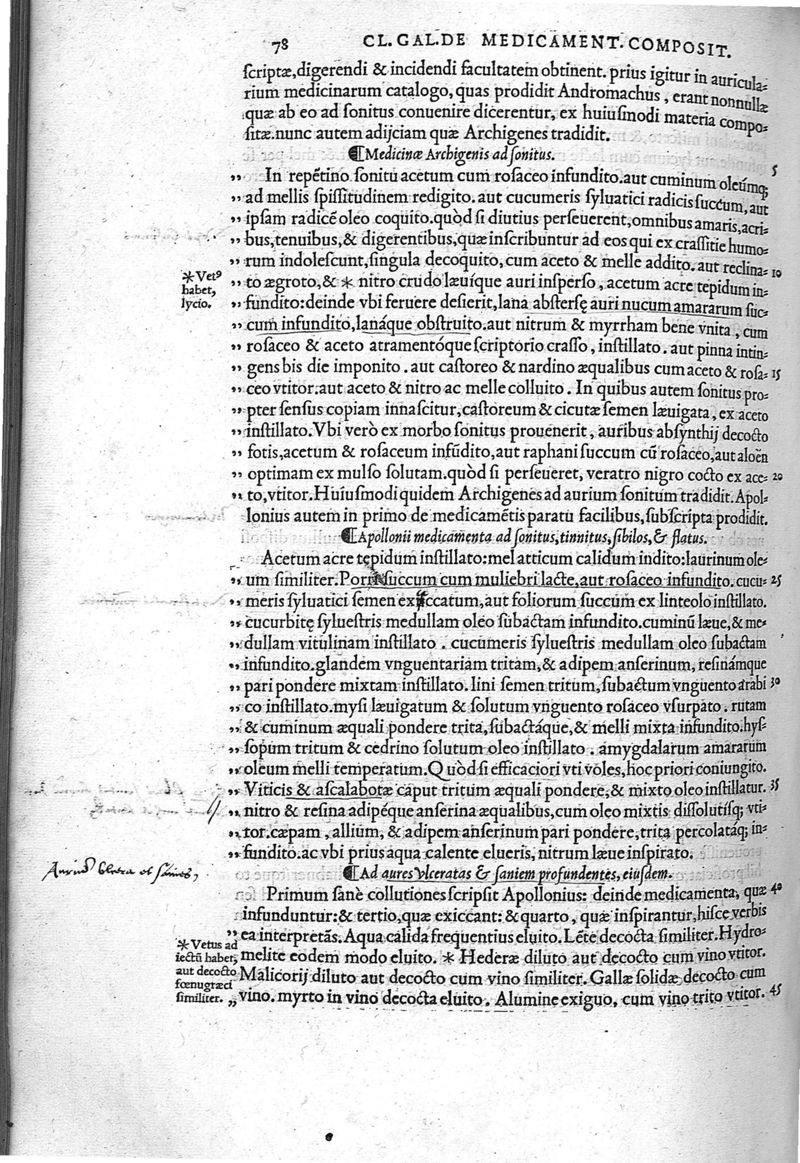 78 CL. GAL. DE MEDICAMENT. COMPOSIT.
ſcriptæ, digerendi & incidendi facultatem obtinent. prius igitur in auricula-
rium medicinarum catalogo, quas prodidit Andromachus, erant nonnullæ
quæ ab eo ad ſonitus conuenire dicerentur, ex huiuſmodi materia compo-
ſitæ. nunc autem adijciam quæ Archigenes tradidit.
¶ Medicinæ Archigenis ad ſonitus.
In repẽtino ſonitu acetum cum roſaceo infundito. aut cuminum oleúmq; 5
„ ad mellis ſpiſſitudinem redigito. aut cucumeris ſyluatici radicis ſuccum, aut
„ ipſam radicẽ oleo coquito. quòd ſi diutius perſeuerent, omnibus amaris, acri-
„ bus, tenuibus, & digerentibus, quæ inſcribuntur ad eos qui ex craſſitie humo-
„ rum indoleſcunt, ſingula decoquito, cum aceto & melle addito. aut reclina- 10
* Vetꝰ habet, lycio.
„ to ægroto, & * nitro crudo læuíque auri inſperſo, acetum acre tepidum in-
„ fundito: deinde vbi feruere deſierit, lana abſterſę auri nucum amararum ſuc-
„ cum infundito, lanáque obſtruito. aut nitrum & myrrham bene vnita, cum
„ roſaceo & aceto atramentóque ſcriptorio craſſo, inſtillato. aut pinna intin-
„ gens bis die imponito. aut caſtoreo & nardino æqualibus cum aceto & roſa- 15
„ ceo vtitor. aut aceto & nitro ac melle colluito. In quibus autem ſonitus pro-
„ pter ſenſus copiam innaſcitur, caſtoreum & cicutæ ſemen læuigata, ex aceto
„ inſtillato. Vbi verò ex morbo ſonitus prouenerit, auribus abſynthij decocto
„ fotis, acetum & roſaceum infũdito, aut raphani ſuccum cũ roſaceo, aut aloẽn
„ optimam ex mulſo ſolutam. quòd ſi perſeueret, veratro nigro cocto ex ace- 20
„ to, vtitor. Huiuſmodi quidem Archigenes ad aurium ſonitum tradidit. Apol-
lonius autem in primo de medicamẽtis paratu facilibus, ſubſcripta prodidit.
¶ Apollonii medicamenta ad ſonitus, tinnitus, ſibilos, & flatus.
Acetum acre tepidum inſtillato: mel atticum calidum indito: laurinum ole-
„ um ſimiliter. Porri ſuccum cum muliebri lacte, aut roſaceo infundito. cucu- 25
„ meris ſyluatici ſemen exiccatum, aut foliorum ſuccum ex linteolo inſtillato.
„ cucurbitę ſylueſtris medullam oleo ſubactam infundito. cuminũ læue, & me-
„ dullam vitulinam inſtillato. cucumeris ſylueſtris medullam oleo ſubactam
„ infundito. glandem vnguentariam tritam, & adipem anſerinum, reſinámque
„ pari pondere mixtam inſtillato. lini ſemen tritum, ſubactum vnguento arabi 30
„ co inſtillato. myſi læuigatum & ſolutum vnguento roſaceo vſurpato. rutam
„ & cuminum æquali pondere trita, ſubactáque, & melli mixta infundito. hyſ-
„ ſopum tritum & cedrino ſolutum oleo inſtillato. amygdalarum amararum
„ oleum melli temperatum. Quòd ſi efficaciori vti voles, hoc priori coniungito.
„ Viticis & aſcalabotæ caput tritum æquali pondere, & mixto oleo inſtillatur. 35
„ nitro & reſina adipéque anſerina æqualibus, cum oleo mixtis diſſolutiſq; vti-
„ tor. cæpam, allium, & adipem anſerinum pari pondere, trita percolatáq; in-
„ fundito. ac vbi prius aqua calente elueris, nitrum læue inſpirato.
¶ Ad aures vlceratas & ſaniem profundentes, eiuſdem.
Primum ſanè collutiones ſcripſit Apollonius: deinde medicamenta, quæ 40
infunduntur: & tertio, quæ exiccant: & quarto, quæ inſpirantur, hiſce verbis
„ ea interpretãs. Aqua calida frequentius eluito. Lẽte decocta ſimiliter. Hydro-
* Vetus ad iectũ habet, aut decocto fœnugræci ſimiliter.
melite eodem modo eluito. * Hederæ diluto aut decocto cum vino vtitor.
Malicorij diluto aut decocto cum vino ſimiliter. Gallæ ſolidæ decocto cum
„ vino. myrto in vino decocta eluito. Alumine exiguo, cum vino trito vtitor. 45